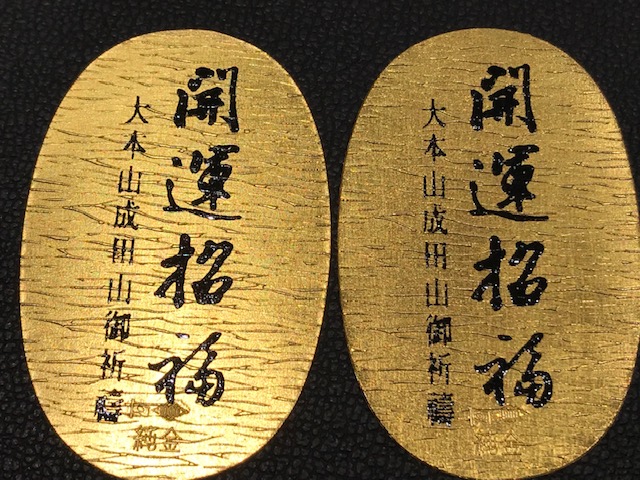 開運招福
大本山成田山御祈禱
純金
開運招福
大本山成田山御祈禱
純金